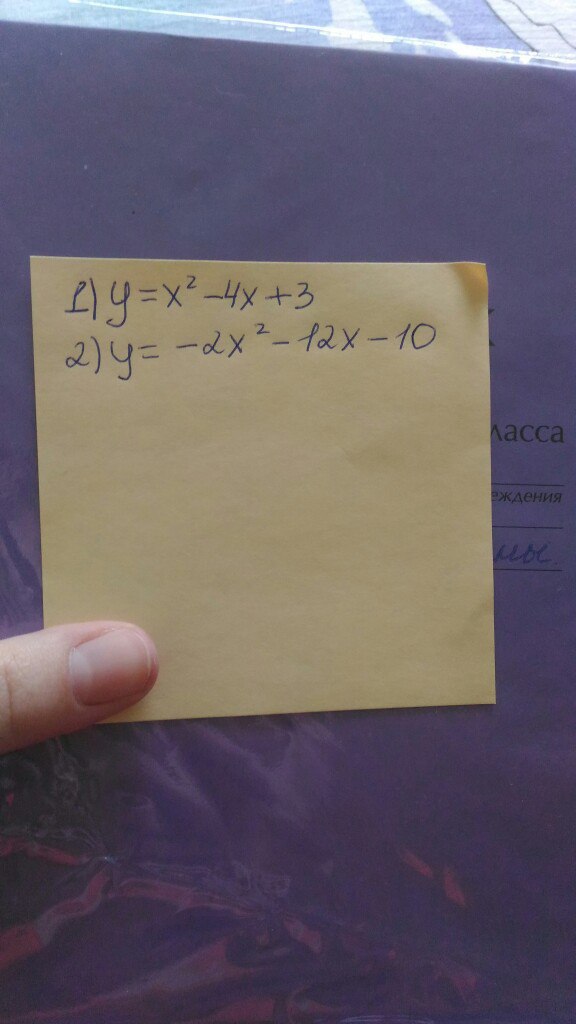 1) y = x² - 4x + 3
2) y = - 2x² - 12x - 10
ласса
еждения